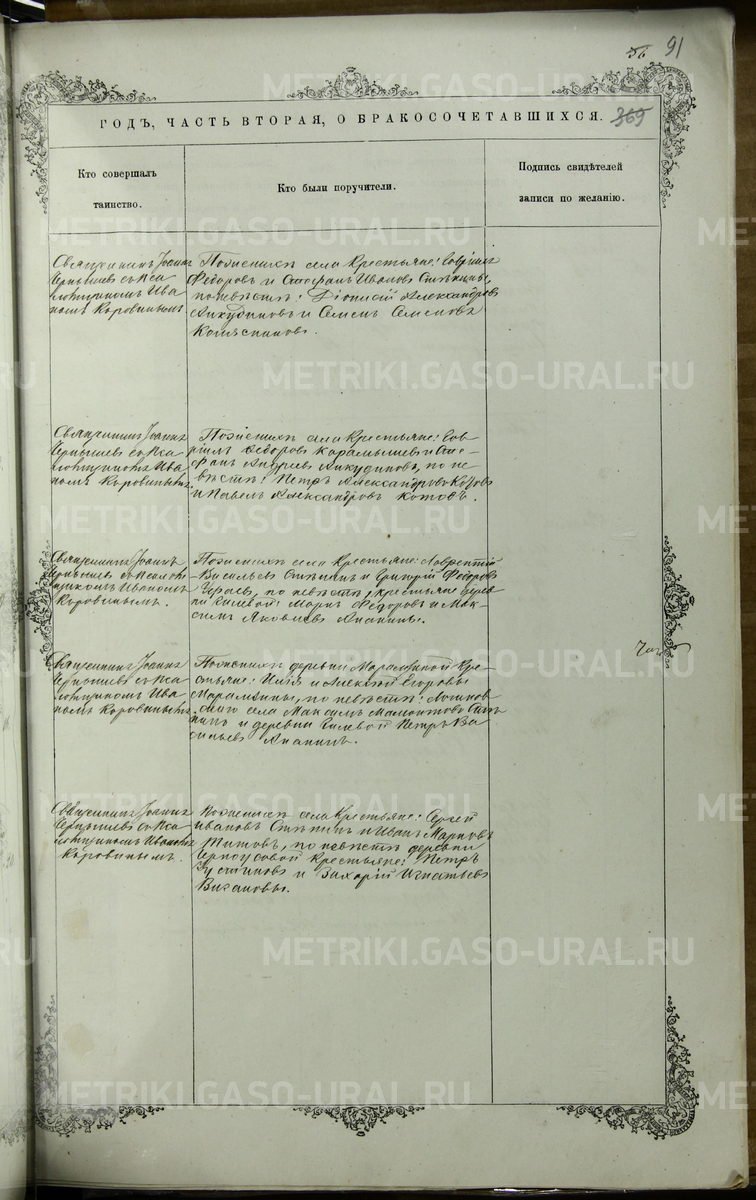 91
ГОДЪ, ЧАСТЬ ВТОРАЯ, О БРАКОСОЧЕТАВШИХСЯ.
369
Кто совершалъ
таинство.
Кто были поручители.
Подпись свидѣтелей
записи по желанію.
Священникъ Іоаннъ
Чернышевъ съ пса
ломщикомъ Ива
номъ Коровинымъ
села Крестьяне: Гавріилъ
Ѳедоровъ и Стефанъ Ивановъ
по невѣстѣ: Діонисій Александровъ
Анкудиновъ и Семенъ Семеновъ
Священникъ Іоаннъ
Чернышевъ съ пса
ломщикомъ Ива
номъ Коровинымъ.
села Крестьяне: Гав-
ріилъ Ѳедоровъ Карамышевъ и Сте-
фанъ Андреевъ Анкудиновъ, по не-
вѣстѣ: Петръ Александровъ Котовъ
и Павелъ Александровъ Котовъ.
Священникъ Іоаннъ
Чернышевъ съ псалом
щикомъ Иваномъ
Коровинымъ.
села Крестьяне: Лаврентій
Васильевъ и Григорій Ѳедоровъ
по невѣстѣ, крестьяне дерев
ни Гилевой: Маркъ Ѳедоровъ и Мак-
симъ Яковлевъ Ананины.
Священникъ Іоаннъ
Чернышевъ съ пса
ломщикомъ Ива
номъ Коровинымъ
деревни Марамзиной Кре-
стьяне: Илія и Алексѣй Егоровы
Марамзины, по невѣстѣ:
села Максимъ Мамонтовъ
и деревни Гилевой Петръ Ва
сильевъ Ананинъ.
Священникъ Іоаннъ
Чернышевъ съ пса
ломщикомъ Иваномъ
Коровинымъ.
села Крестьяне: Сергей
Ивановъ и Иванъ Марковъ
Титовъ, по невѣстѣ деревни
Черноусовой Крестьяне: Петръ
и Захарій Игнатьевъ
METRIKI.GASO-URAL.RU